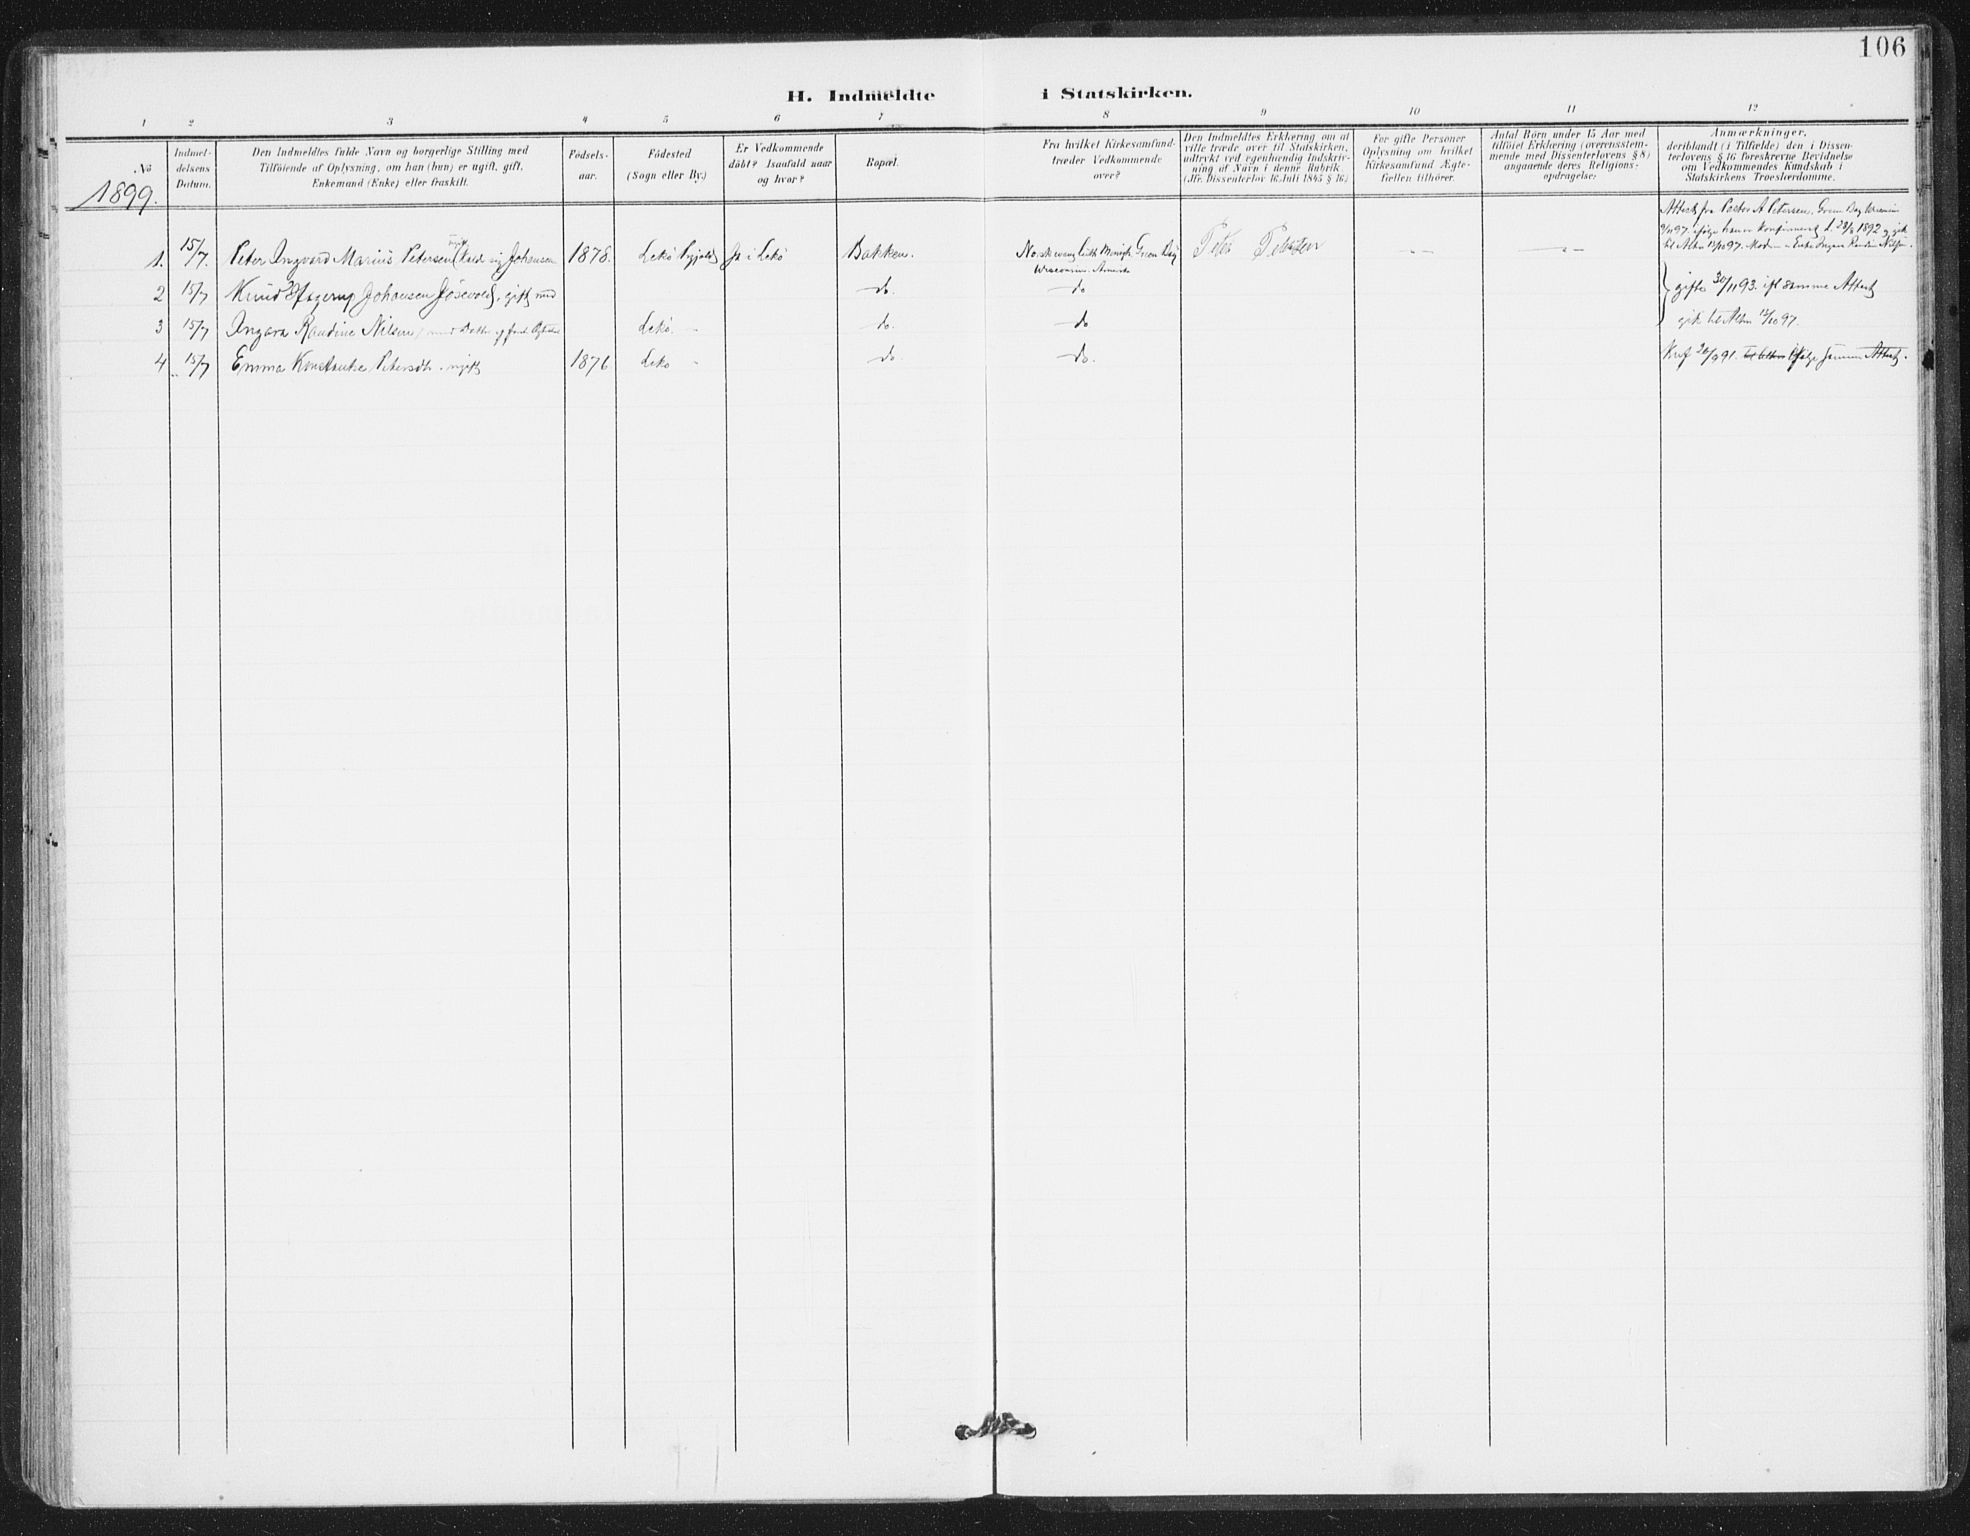 106
H. Indmeldte i Statskirken.
1 2 3 4 5 6 7 8 9 10 11 12
No
Indmel-
delsens
Datum.
Den Indmeldtes fulde Navn og borgerlige Stilling med
Tilföiende af Oplysning, om han (hun) er ugift, gift,
Enkemand (Enke) eller fraskilt.
Födsels-
aar.
Födested
(Sogn eller By.)
Er Vedkommende
döbt? Isaafald naar
og hvor?
Bopæl.
Fra hvilket Kirkesamfund
træder Vedkommende
over?
Den Indmeldtes Erklæring om at
ville træde over til Statskirken,
udtrykt ved egenhændig Indskriv-
ning af Navn i denne Rubrik
(Jfr. Dissenterlov 16 Juli 1845 § 16)
For gifte Personer
Oplysning om hvilket
Kirkesamfund Ægte-
fællen tilhörer.
Antal Börn under 15 Aar med
tilföiet Erklæring (overensstem-
mende med Dissenterlovens § 8)
angaaende deres Religions-
opdragelse:
Anmærkninger,
deriblandt (i Tilfælde) den i Dissen-
terlovens § 16 foreskrevne Bevidnelse
om Vedkommendes Kundskab i
Statskirkens Troeslærdomme.
1899.
Attest fra Pastor A Petersen, Green Bay
9/11 97. ifølge han er konfirmeret d. 28/8 1892 og gik
til Altn 12/10 97. Moder = Enke Ingara Randine Nilsen.
1. 15/7. Peter Ingvard Marius Petersen (kalder sig Johansen 1878. Lekö Ja i Lekö Bakken. Norsk evang luth Green Bay Peter Petersen — —
Wisconsin. Amerika
2 15/7 Knud Johansen gift med do. do gifte 30/11 93. ifl samme Attest
3 15/7 Ingara Randine Nilsen Lekö. – do. do gik til Altn 12/10 97.
4 15/7 Emma Konstanse Petersdtr. ugift 1876 Leko – do. do. Knf 20/9 91. ifølge samme Attest.